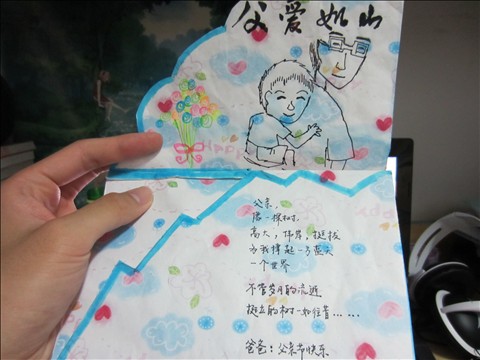 父爱如山
父亲,
像一棵树.
高大,伟岸,挺拔
为我撑起一方蓝天
一个世界
不管岁月的流逝
挺立的树一如往昔......
爸爸:父亲节快乐